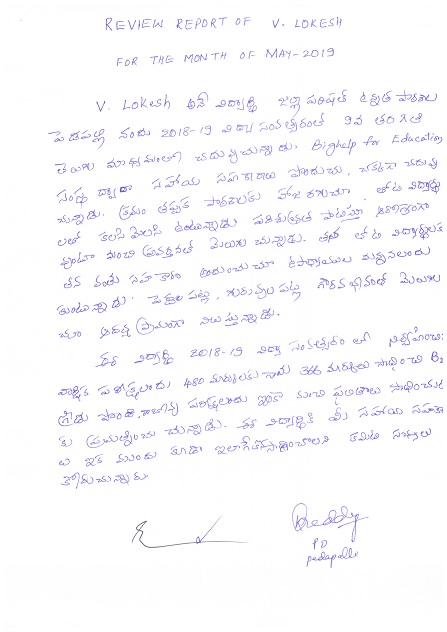 REVIEW REPORT OF V. LOKESH
FOR THE MONTH OF MAY-2019
V. Lokesh అనే విద్యార్థి జిల్లా పరిషత్ ఉన్నత పాఠశాల
పెదపల్లి నందు 2018-19 విద్యా సంవత్సరంలో 9వ తరగతి
తెలుగు మాధ్యమంలో చదువుచున్నాడు. Bighelp for Education
సంస్థ ద్వారా సహాయ సహకారాలు పొందుచు, చక్కగా చదువు
చున్నాడు. క్రమం తప్పక పాఠశాలకు హాజరగుచూ, తోటి విద్యార్థు
లతో కలసి మెలసి ఉంటున్నాడు
వుంటూ మంచి ప్రవర్తనతో మెలుగుచున్నాడు. తన తోటి
తన వంతు సహకారం అందించుచూ ఉపాధ్యాయుల మన్ననలందు
కుంటున్నాడు. పెద్దల పట్ల, గురువుల పట్ల గౌరవభావంతో మెలుగు
చూ ఆదర్శ ప్రాయంగా నిలుస్తున్నాడు.
ఈ విద్యార్థి 2018-19 విద్యా సంవత్సరం లో నిర్వహించిన
వార్షిక పరీక్షలందు 480 మార్కులకు గాను 366 మార్కులు సాధించి B2
గ్రేడు పొంది, రాబోవు పరీక్షలందు ఇంకా మంచి ఫలితాలు
కు ప్రయత్నించు చున్నాడు. ఈ విద్యార్థికి మీ సహాయ సహకా
ల ఇక ముందు కూడా
కోరుచున్నారు.
Reddy
PD
pedapalli